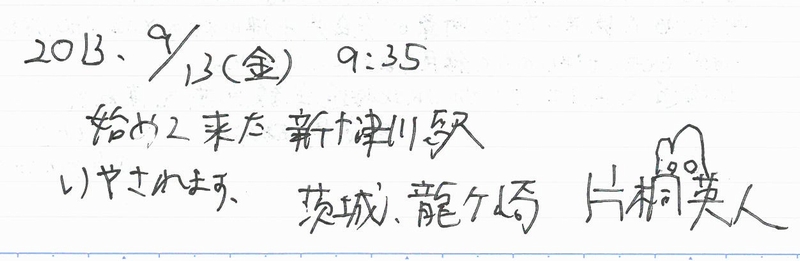 2013、9/13(金) 9:35
始めて来た新十津川駅
いやされます、
茨城、龍ケ崎 片桐英人